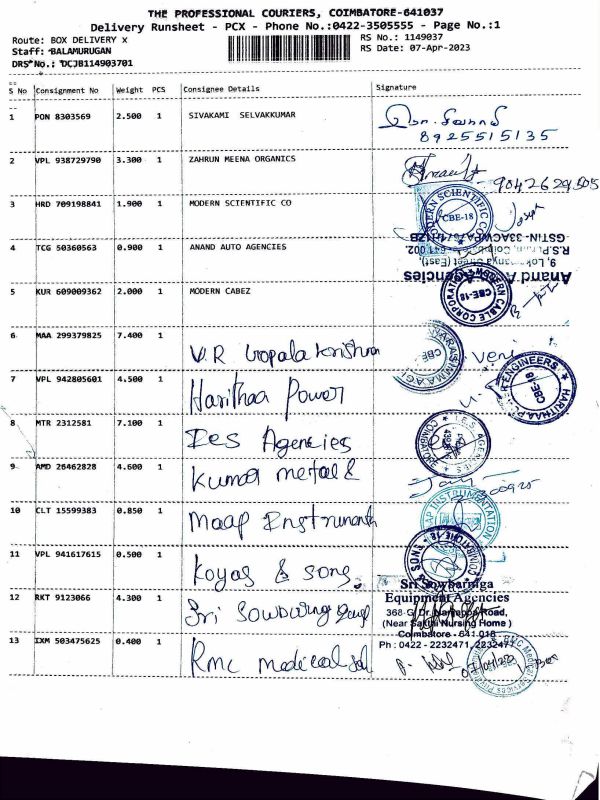 THE PROFESSIONAL COURIERS, COIMBATORE-641037
Delivery Runsheet - PCX - Phone No.:0422-3505555 - Page No.:1
Route: BOX DELIVERY x
RS No.: 1149037
Staff: BALAMURUGAN
RS Date: 07-Apr-2023
DRS No.: DCJB114903701
S No Consignment No Weight PCS Consignee Details Signature
1 PON 8303569 2.500 1 SIVAKAMI SELVAKKUMAR
8925515135
2 VPL 938729790 3.300 1 ZAHRUN MEENA ORGANICS
9042629505
3 HRD 709198841 1.900 1 MODERN SCIENTIFIC CO
MODERN SCIENTIFIC CO
CBE-18
Joseph
4 TCG 50360563 0.900 1 ANAND AUTO AGENCIES
Anand Agencies
9, Street (East),
R.S.Puram, 002.
5 KUR 609009362 2.000 1 MODERN CABEZ
MODERN CABLE CORPORATION
CBE-18
6 MAA 299379825 7.400 1 V.R Gopala Krishna
CBE
Veni
7 VPL 942805601 4.500 1 Harithaa Power
HARITHAA POWER ENGINEERS
CBE-18
8 MTR 2312581 7.100 1 Ies Agencies
I.E.S. AGENCIES
COIMBATORE
9 AMD 26462828 4.600 1 Kumar metal &
10 CLT 15599383 0.850 1 Maap Instruments
MAAP INSTRUMENTATION
11 VPL 941617615 0.500 1 Koyas & sons
SONS
12 RKT 9123066 4.300 1 Sri
Sri Sowbarniga
Equipment Agencies
368-G, Dr. Nanjappa Road,
(Near Sakthi Nursing Home)
Coimbatore - 641 018
Ph : 0422 - 2232471, 2232477
13 IXM 503475625 0.400 1 RMC Medical
07/04/23
RMC Medical Services